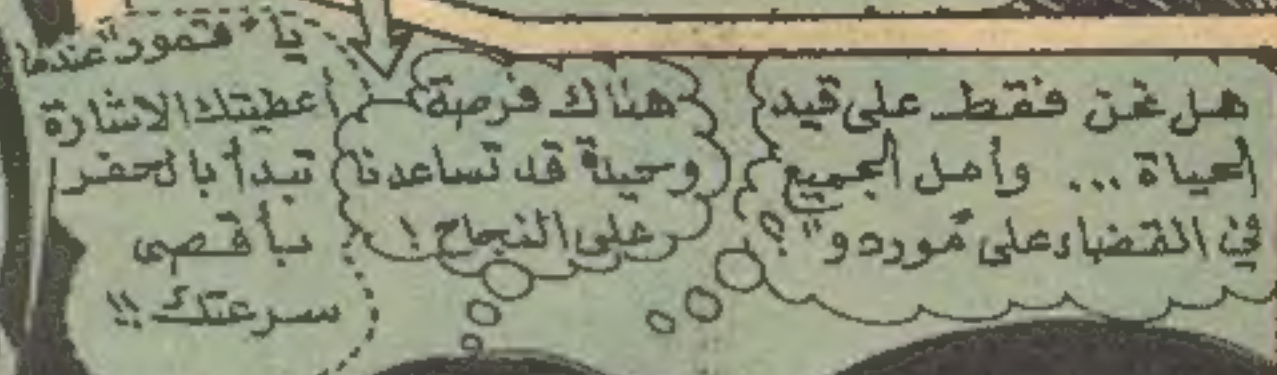 هل نحن فقط على قيد
الحياة ... وأمل الجميع
في القضاء على "موردو"؟
هناك فرصة
وحيدة قد تساعدنا
على النجاح!
يا "قمور" عندما
أعطيتك الاشارة
تبدأ بالحفر
بأقصى
سرعتك!!